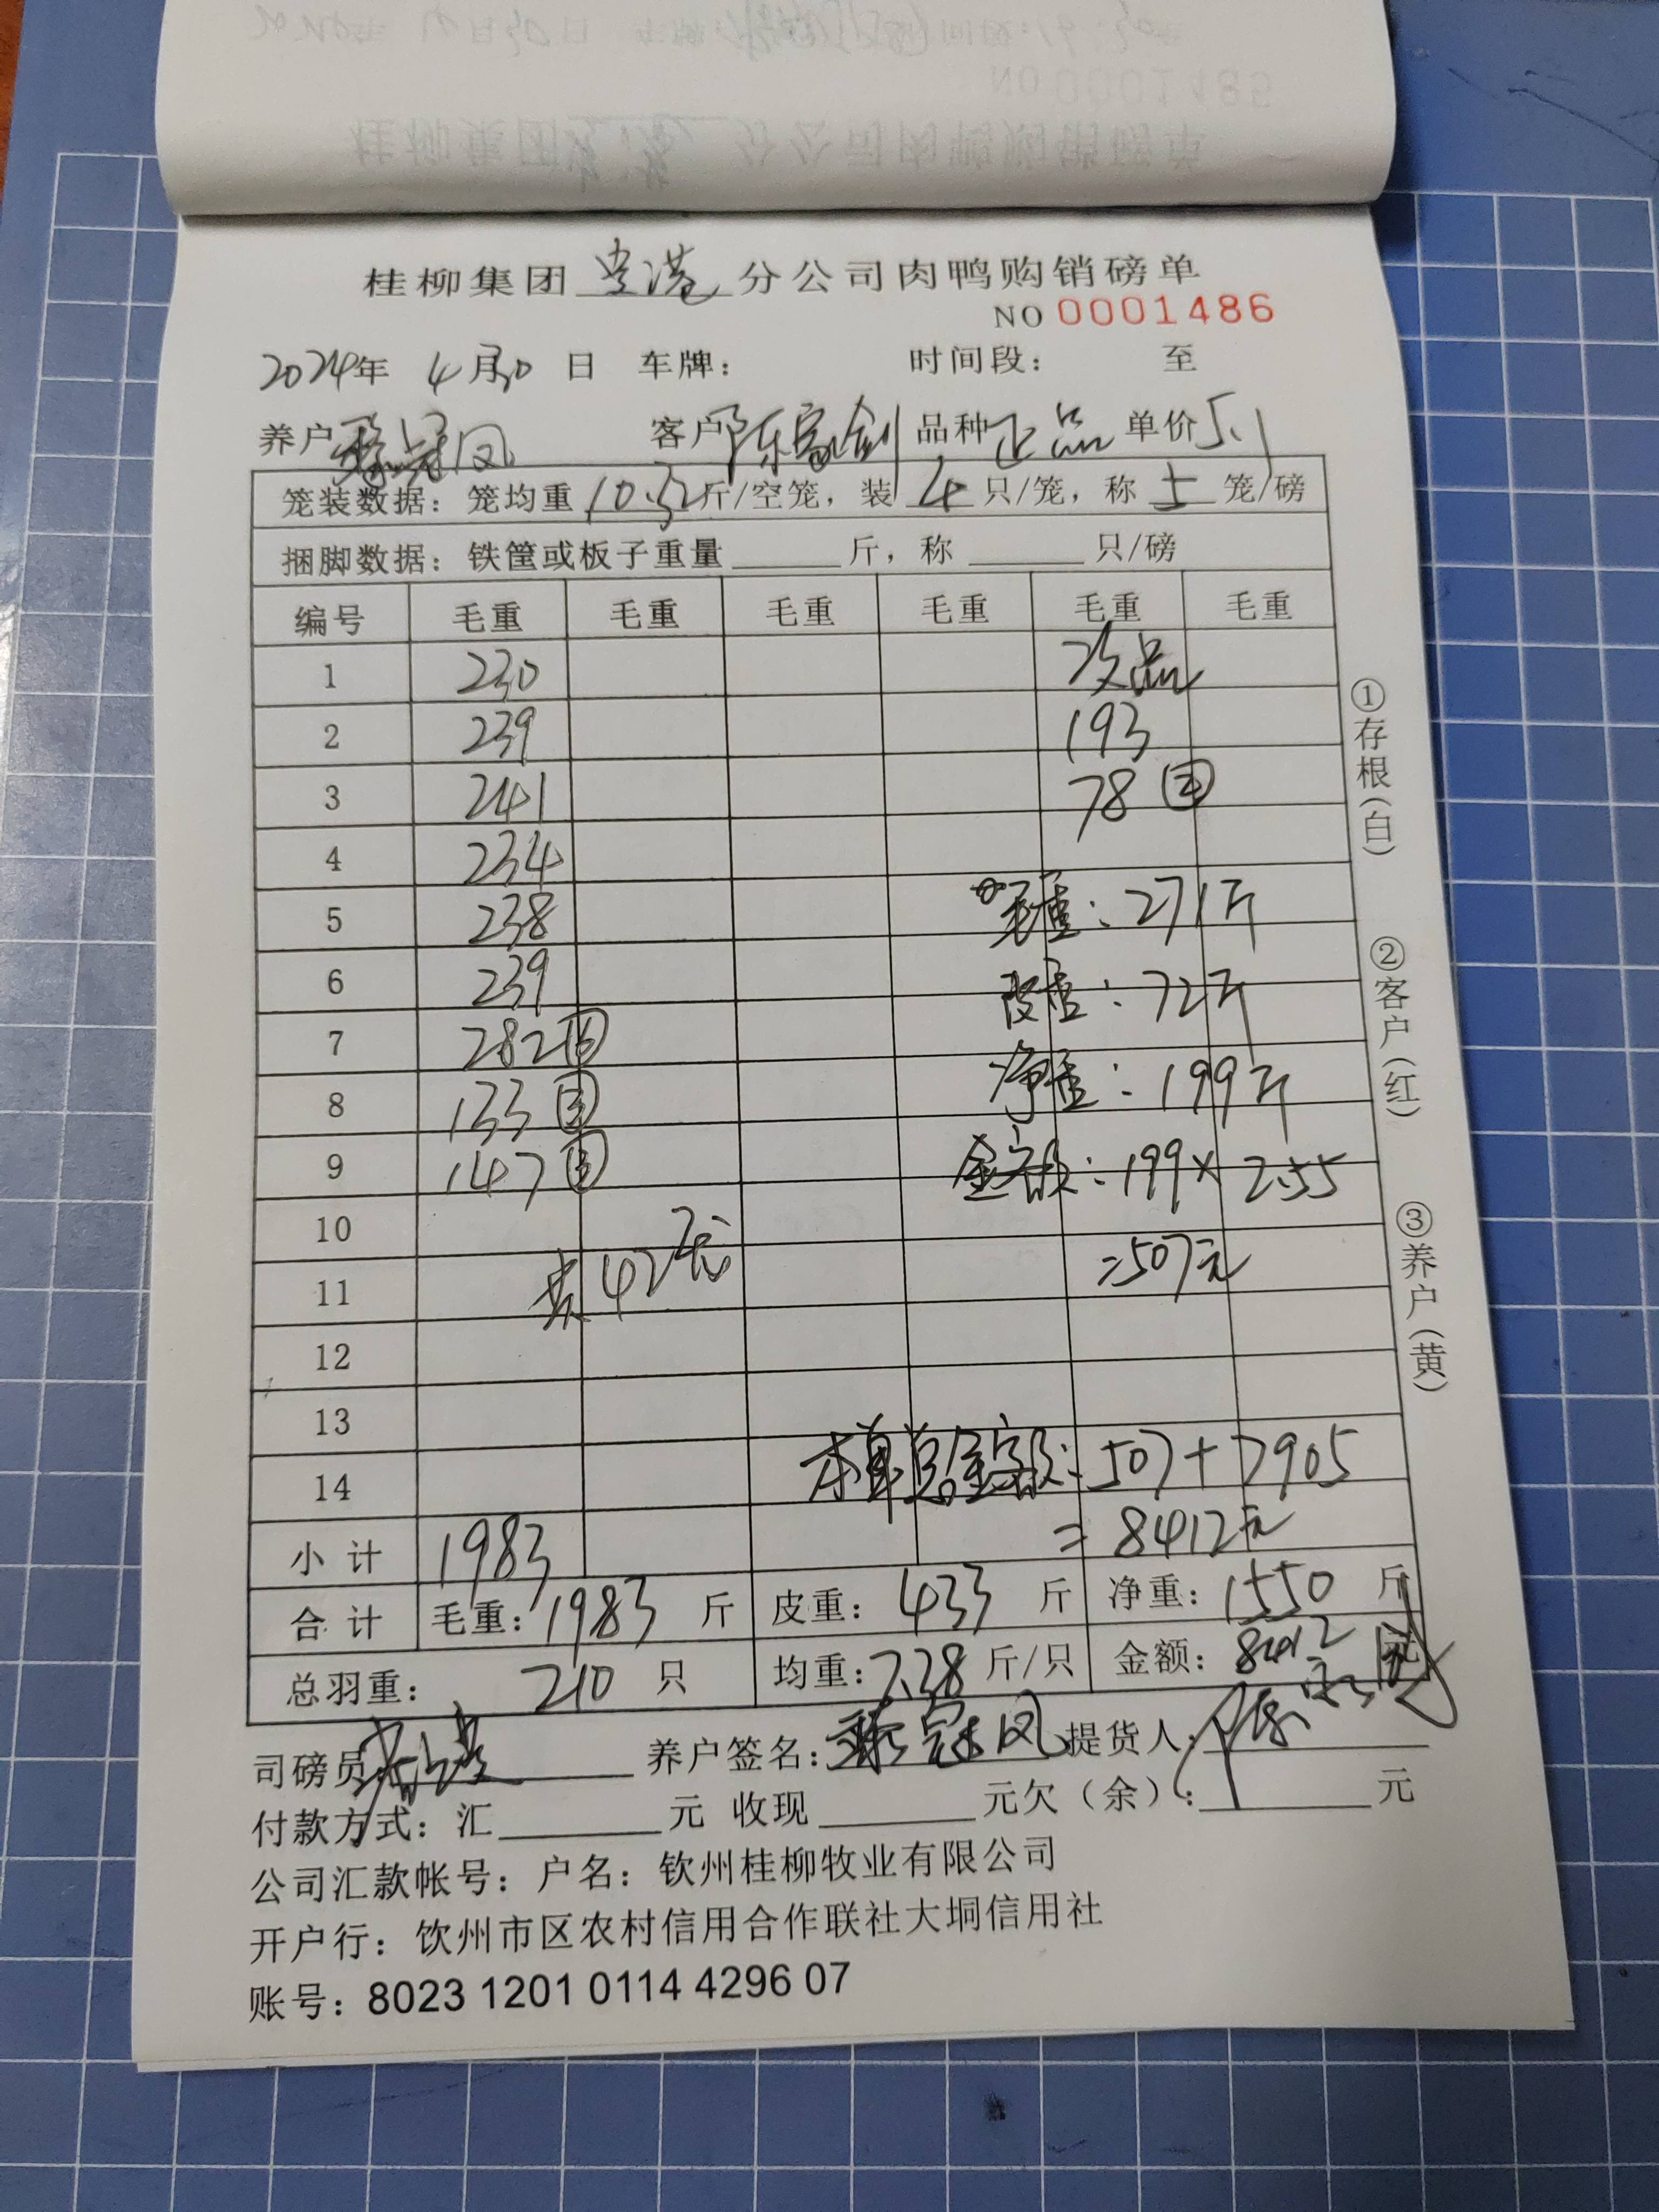 桂柳集团贵港分公司肉鸭购销磅单
NO 0001486
2024年 4月30日 车牌： 时间段： 至
养户 冠凤 客户 陈家剑 品种 正品 单价 5.1
笼装数据：笼均重 10.32 斤/空笼，装 4 只/笼，称 5 笼/磅
捆脚数据：铁筐或板子重量 斤，称 只/磅
编号 毛重 毛重 毛重 毛重 毛重 毛重
1 230 次品
2 239 193
3 241 78
4 234
5 238 毛重：271斤
6 239 皮重：72斤
7 282⑥ 净重：199斤
8 133③ 金额：199×2.55
9 147③
10
11 共42 =507元
12
13
14 本单总金额：507+7905
小计 1983 =8412元
合计 毛重：1983 斤 皮重：433 斤 净重：1550 斤
总羽重： 210 只 均重：7.38 斤/只 金额：8412 元
司磅员： 养户签名： 冠凤 提货人：陈家剑
付款方式：汇 元 收现 元欠（余）： 元
公司汇款帐号：户名：钦州桂柳牧业有限公司
开户行：钦州市区农村信用合作联社大垌信用社
账号：8023 1201 0114 4296 07
①存根（白）
②客户（红）
③养户（黄）